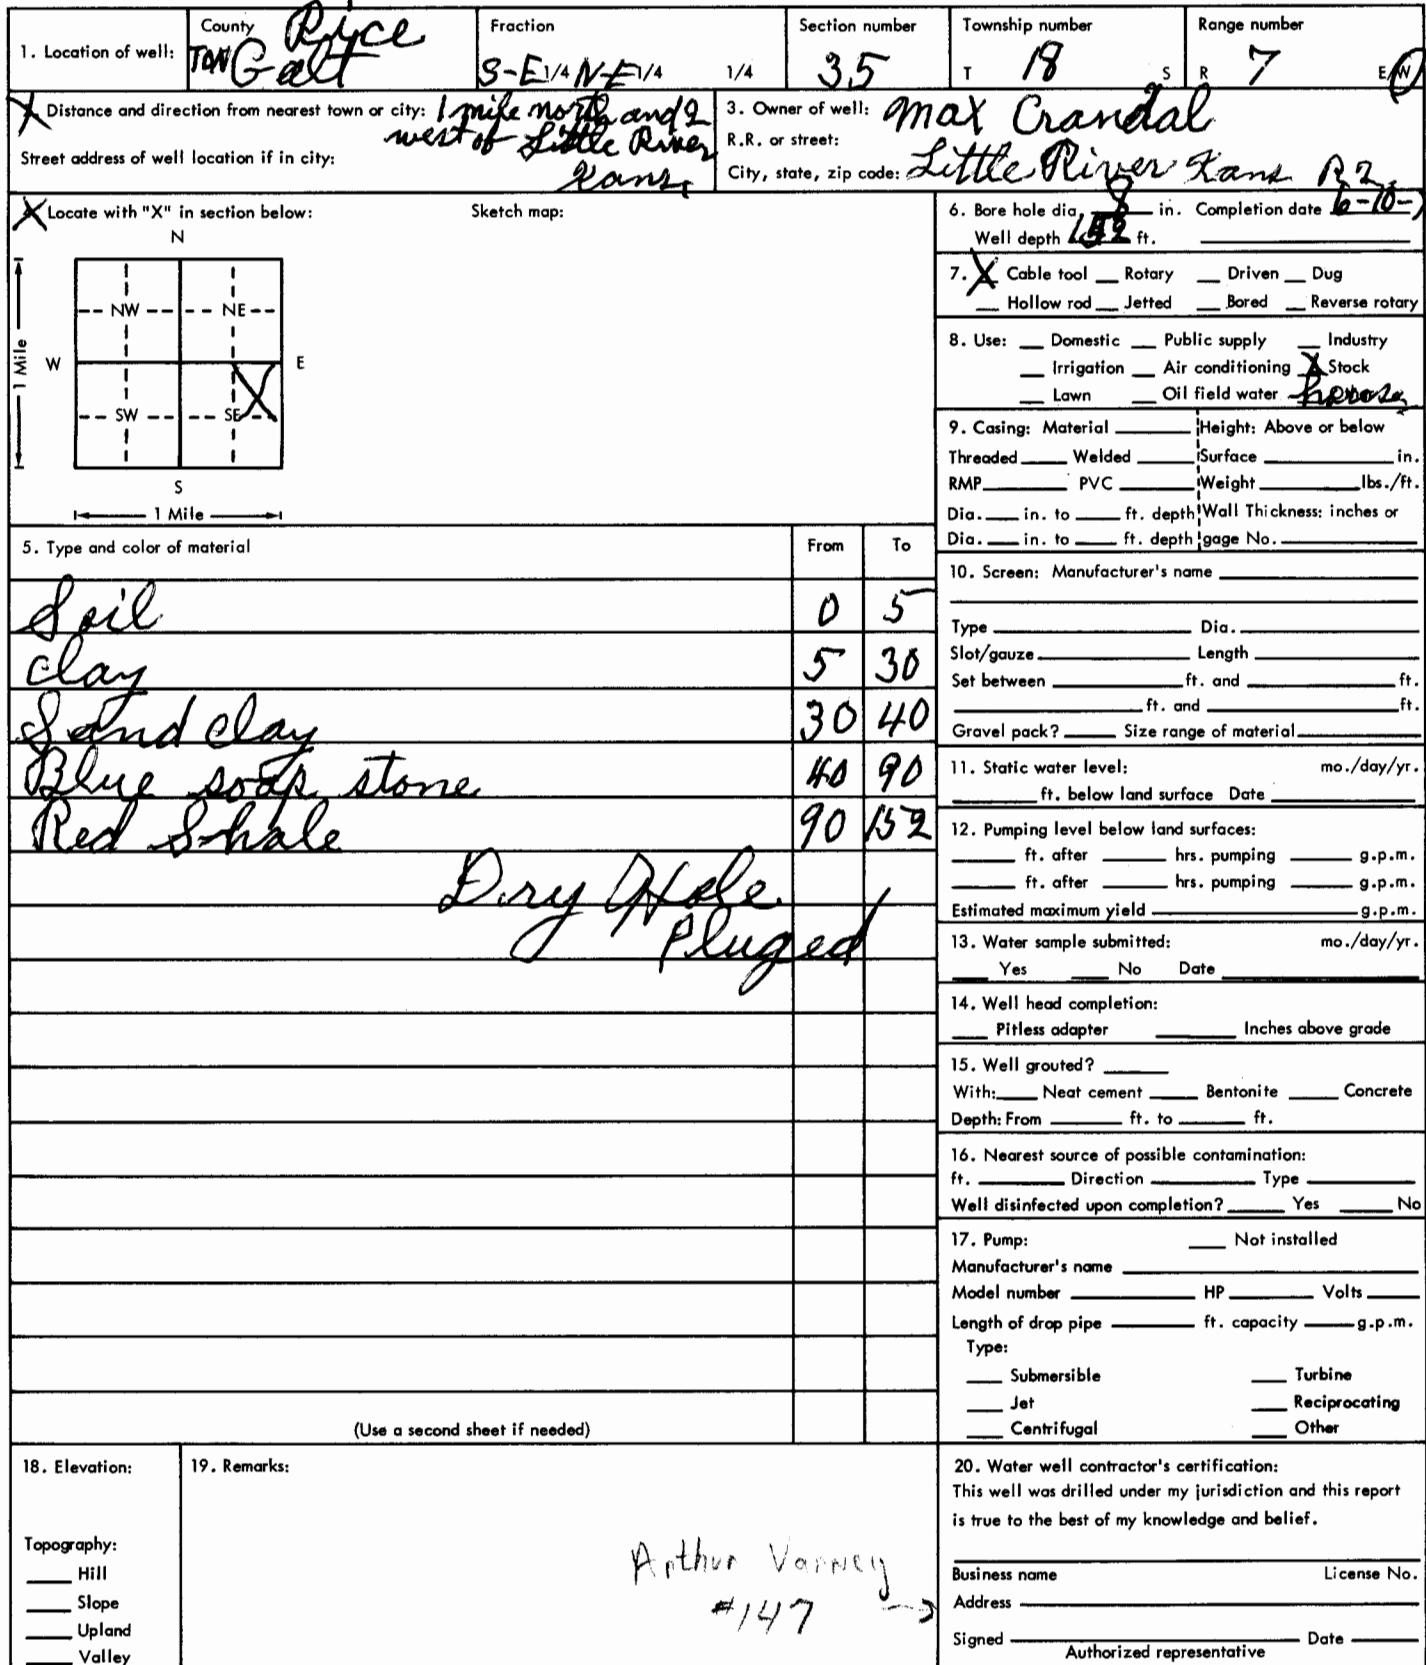 1. Location of well:
County Rice
TOWN Galt
Fraction
S-E 1/4 N-E 1/4 1/4
Section number
35
Township number
T 18 S
Range number
R 7 E/W
Distance and direction from nearest town or city: 1 mile north and 2
west of Little River
Kans,
Street address of well location if in city:
3. Owner of well: Max Crandal
R.R. or street:
City, state, zip code: Little River Kans R 2
Locate with "X" in section below:
Sketch map:
N
NW NE
W E
SW SE
S
1 Mile
1 Mile
6. Bore hole dia. 8 in. Completion date 6-10-
Well depth 152 ft.
7. X Cable tool Rotary Driven Dug
Hollow rod Jetted Bored Reverse rotary
8. Use: Domestic Public supply Industry
Irrigation Air conditioning X Stock
Lawn Oil field water
9. Casing: Material Height: Above or below
Threaded Welded Surface in.
RMP PVC Weight lbs./ft.
Dia. in. to ft. depth Wall Thickness: inches or
Dia. in. to ft. depth gage No.
5. Type and color of material From To
Soil 0 5
clay 5 30
Sand clay 30 40
Blue soap stone 40 90
Red Shale 90 152
Dry Hole
Pluged
(Use a second sheet if needed)
10. Screen: Manufacturer's name
Type Dia.
Slot/gauze Length
Set between ft. and ft.
ft. and ft.
Gravel pack? Size range of material
11. Static water level: mo./day/yr.
ft. below land surface Date
12. Pumping level below land surfaces:
ft. after hrs. pumping g.p.m.
ft. after hrs. pumping g.p.m.
Estimated maximum yield g.p.m.
13. Water sample submitted: mo./day/yr.
Yes No Date
14. Well head completion:
Pitless adapter Inches above grade
15. Well grouted?
With: Neat cement Bentonite Concrete
Depth: From ft. to ft.
16. Nearest source of possible contamination:
ft. Direction Type
Well disinfected upon completion? Yes No
17. Pump: Not installed
Manufacturer's name
Model number HP Volts
Length of drop pipe ft. capacity g.p.m.
Type:
Submersible Turbine
Jet Reciprocating
Centrifugal Other
18. Elevation:
Topography:
Hill
Slope
Upland
Valley
19. Remarks:
Arthur Varney
#147
20. Water well contractor's certification:
This well was drilled under my jurisdiction and this report
is true to the best of my knowledge and belief.
Business name License No.
Address
Signed Date
Authorized representative